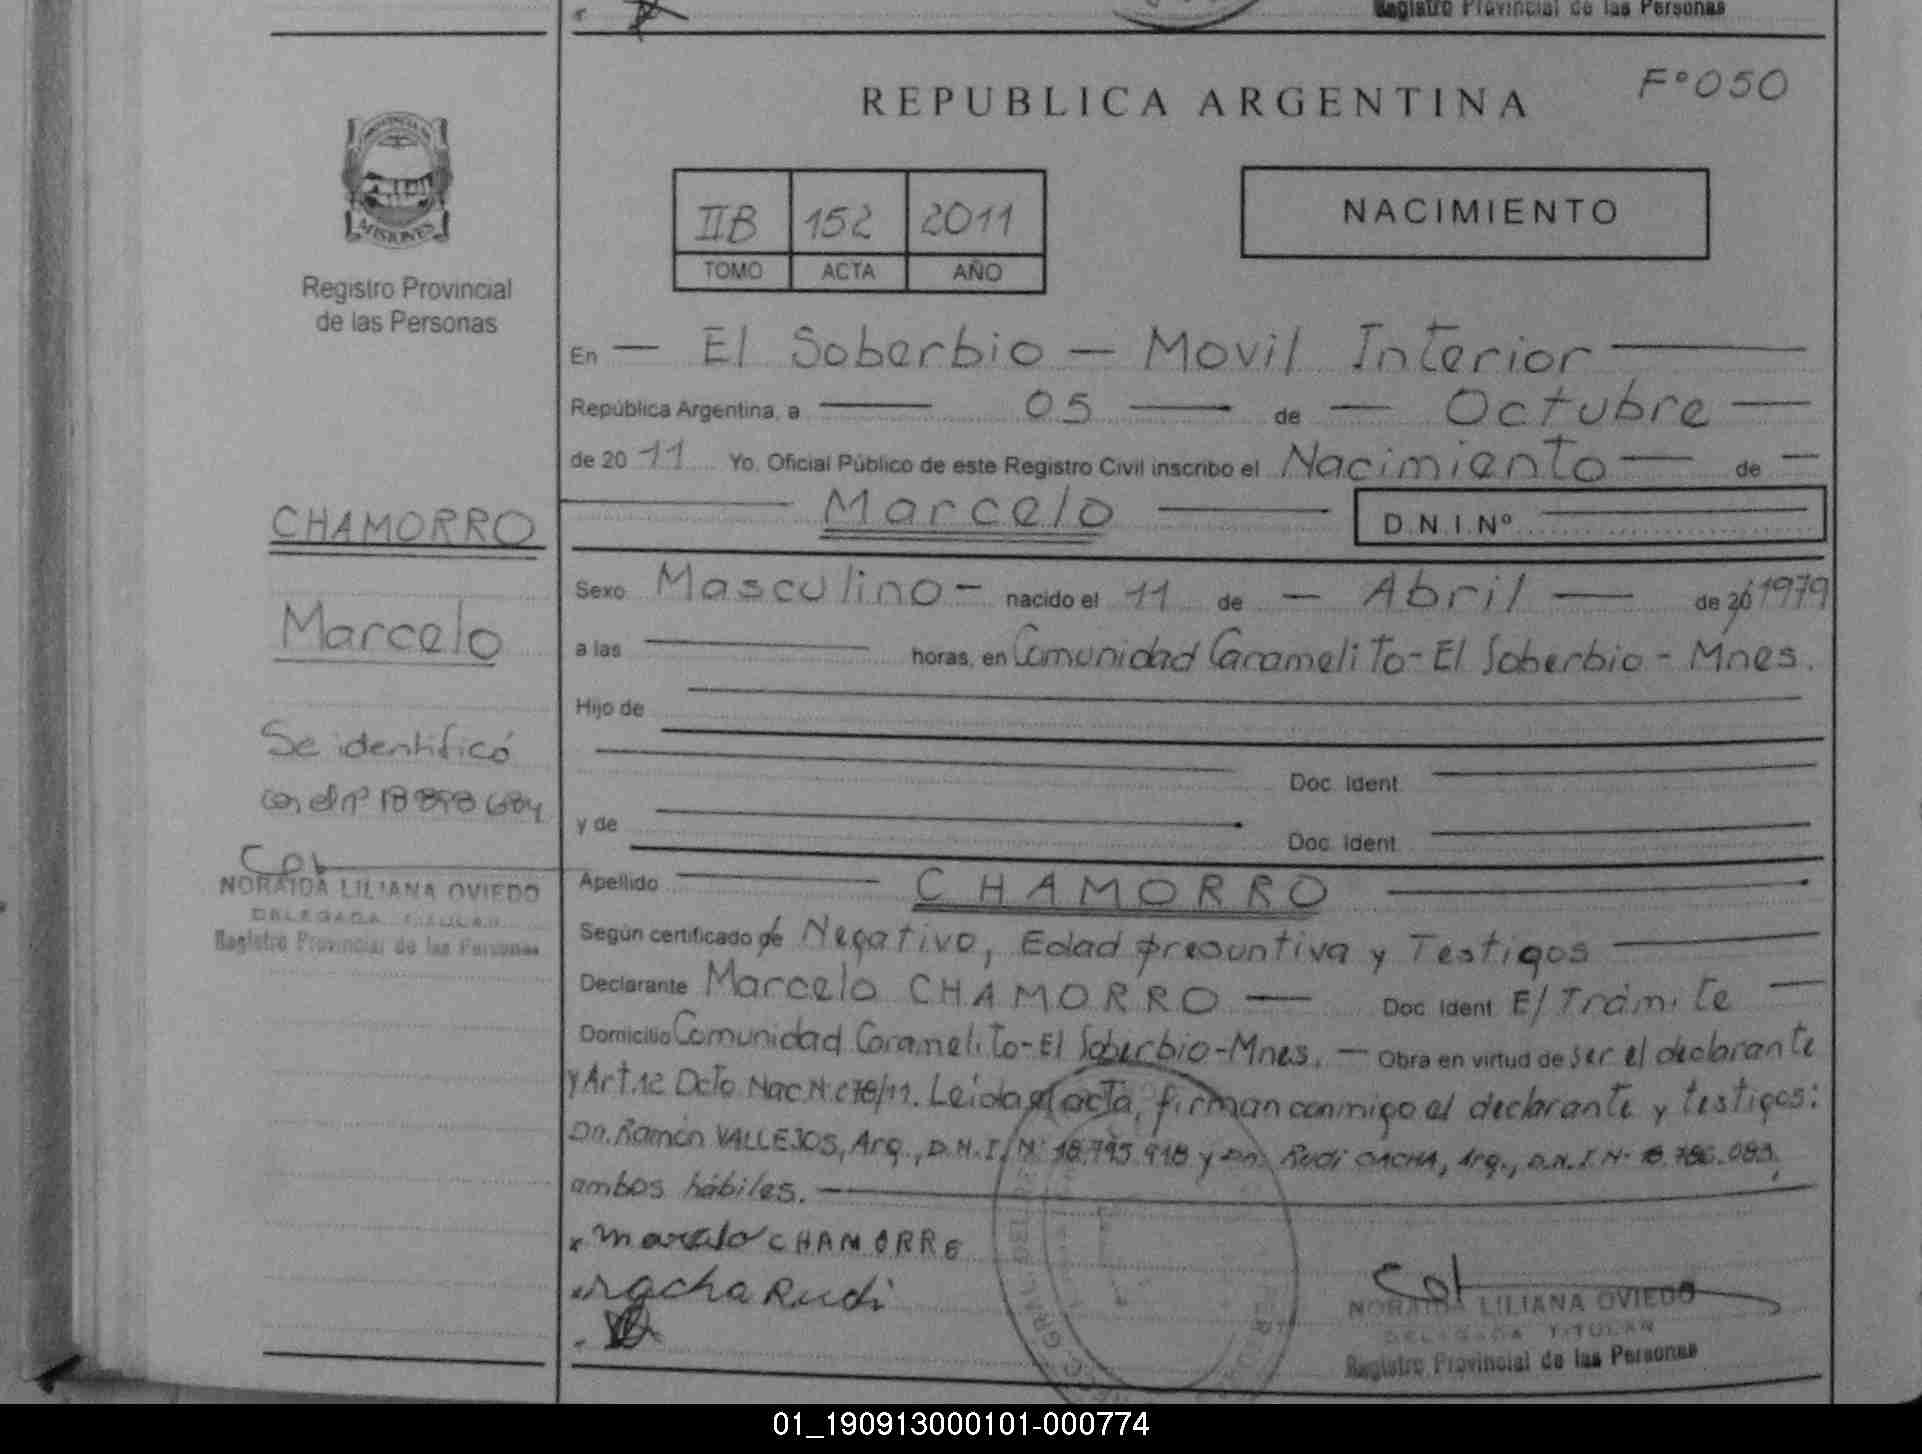 Registro Provincial de las Personas
REPUBLICA ARGENTINA
Fº 050
PROVINCIA DE
MISIONES
Registro Provincial
de las Personas
IIB 152 2011
TOMO ACTA AÑO
NACIMIENTO
En — El Soberbio — Movil Interior —
República Argentina, a — 05 — de — Octubre —
de 20 11 Yo, Oficial Público de este Registro Civil inscribo el Nacimiento — de —
— Marcelo — D.N.I.Nº —
CHAMORRO
Marcelo
Se identificó
con el nº 18 898 684
NORAIDA LILIANA OVIEDO
DELEGADA TITULAR
Registro Provincial de las Personas
Sexo Masculino — nacido el 11 de — Abril — de 20 1979
a las — horas, en Comunidad Caramelito - El Soberbio - Mnes.
Hijo de —
— Doc. Ident. —
y de — Doc. Ident. —
Apellido — CHAMORRO —
Según certificado de Negativo, Edad presuntiva y Testigos —
Declarante Marcelo CHAMORRO — Doc. Ident. E/Trámite —
Domicilio Comunidad Caramelito - El Soberbio - Mnes. — Obra en virtud de ser el declarante
y Art. 12 Dcto Nac N: 278/11. Leída el acta, firman conmigo el declarante y testigos:
Dn. Ramón VALLEJOS, Arg., D.N.I. Nº 18.795.918 y Dn. Rudi Arg., D.N.I. Nº
ambos hábiles. —
x Marcelo CHAMORRE
x Racha Rudi
NORAIDA LILIANA OVIEDO
DELEGADA TITULAR
Registro Provincial de las Personas
01_190913000101-000774